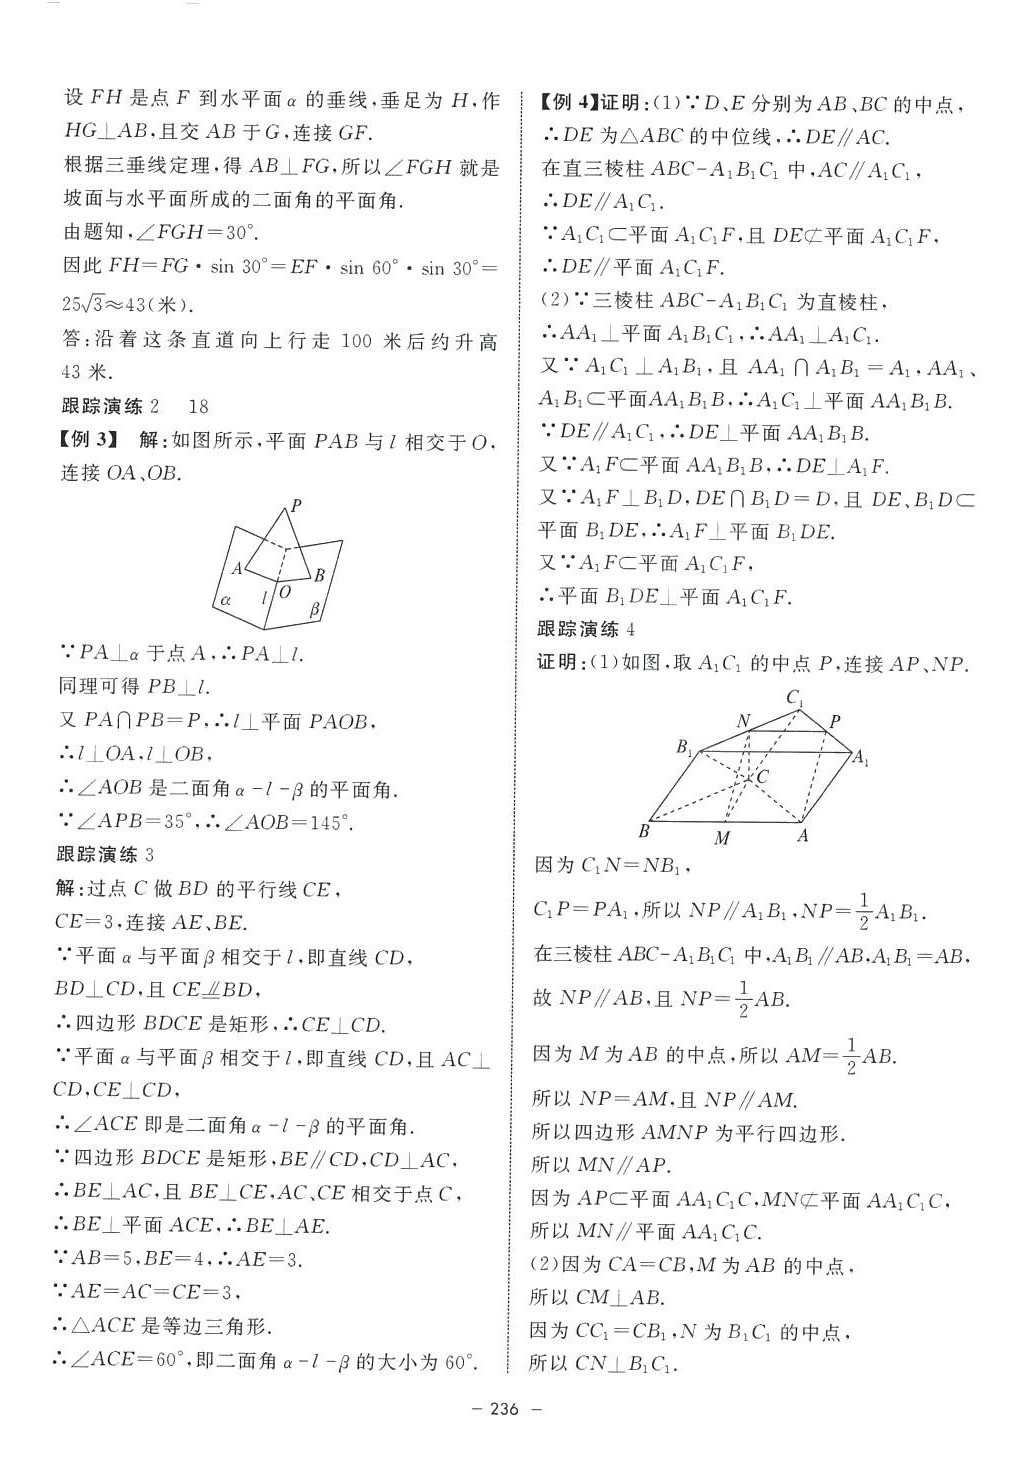 设 FH 是点 F 到水平面 α 的垂线,垂足为 H,作
HG⊥AB,且交 AB 于 G,连接 GF.
根据三垂线定理,得 AB⊥FG,所以∠FGH 就是
坡面与水平面所成的二面角的平面角.
由题知,∠FGH=30°.
因此 FH=FG·sin 30°=EF·sin 60°·sin 30°=
25√3≈43(米).
答:沿着这条直道向上行走 100 米后约升高
43 米.
跟踪演练 2 18
【例 3】 解:如图所示,平面 PAB 与 l 相交于 O,
连接 OA、OB.
P
A
B
O
α
l
β
∵PA⊥α 于点 A,∴PA⊥l.
同理可得 PB⊥l.
又 PA∩PB=P,∴l⊥平面 PAOB,
∴l⊥OA,l⊥OB,
∴∠AOB 是二面角 α-l-β 的平面角.
∵∠APB=35°,∴∠AOB=145°.
跟踪演练 3
解:过点 C 做 BD 的平行线 CE,
CE=3,连接 AE、BE.
∵平面 α 与平面 β 相交于 l,即直线 CD,
BD⊥CD,且 CE⫫BD,
∴四边形 BDCE 是矩形,∴CE⊥CD.
∵平面 α 与平面 β 相交于 l,即直线 CD,且 AC⊥
CD,CE⊥CD,
∴∠ACE 即是二面角 α-l-β 的平面角.
∵四边形 BDCE 是矩形,BE∥CD,CD⊥AC,
∴BE⊥AC,且 BE⊥CE,AC、CE 相交于点 C,
∴BE⊥平面 ACE,∴BE⊥AE.
∵AB=5,BE=4,∴AE=3.
∵AE=AC=CE=3,
∴△ACE 是等边三角形.
∴∠ACE=60°,即二面角 α-l-β 的大小为 60°.
【例 4】证明:(1)∵D、E 分别为 AB、BC 的中点,
∴DE 为△ABC 的中位线,∴DE∥AC.
在直三棱柱 ABC-A₁B₁C₁ 中,AC∥A₁C₁,
∴DE∥A₁C₁.
∵A₁C₁⊂平面 A₁C₁F,且 DE⊄平面 A₁C₁F,
∴DE∥平面 A₁C₁F.
(2)∵三棱柱 ABC-A₁B₁C₁ 为直棱柱,
∴AA₁⊥平面 A₁B₁C₁,∴AA₁⊥A₁C₁.
又∵A₁C₁⊥A₁B₁,且 AA₁∩A₁B₁=A₁,AA₁、
A₁B₁⊂平面AA₁B₁B,∴A₁C₁⊥平面 AA₁B₁B.
∵DE∥A₁C₁,∴DE⊥平面 AA₁B₁B.
又∵A₁F⊂平面 AA₁B₁B,∴DE⊥A₁F.
又∵A₁F⊥B₁D,DE∩B₁D=D,且 DE、B₁D⊂
平面 B₁DE,∴A₁F⊥平面 B₁DE.
又∵A₁F⊂平面 A₁C₁F,
∴平面 B₁DE⊥平面 A₁C₁F.
跟踪演练 4
证明:(1)如图,取 A₁C₁ 的中点 P,连接 AP、NP.
C₁
N
P
B₁
A₁
C
B
M
A
因为 C₁N=NB₁,
C₁P=PA₁,所以 NP∥A₁B₁,NP=1/2A₁B₁.
在三棱柱 ABC-A₁B₁C₁ 中,A₁B₁∥AB,A₁B₁=AB,
故 NP∥AB,且 NP=1/2AB.
因为 M 为 AB 的中点,所以 AM=1/2AB.
所以 NP=AM,且 NP∥AM.
所以四边形 AMNP 为平行四边形.
所以 MN∥AP.
因为 AP⊂平面 AA₁C₁C,MN⊄平面 AA₁C₁C,
所以 MN∥平面 AA₁C₁C.
(2)因为 CA=CB,M 为 AB 的中点,
所以 CM⊥AB.
因为 CC₁=CB₁,N 为 B₁C₁ 的中点,
所以 CN⊥B₁C₁.
- 236 -